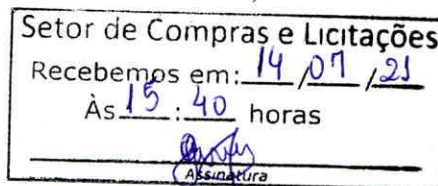 Setor de Compras e Licitações
Recebemos em: 14 / 07 / 21
Às 15 : 40 horas
Assinatura